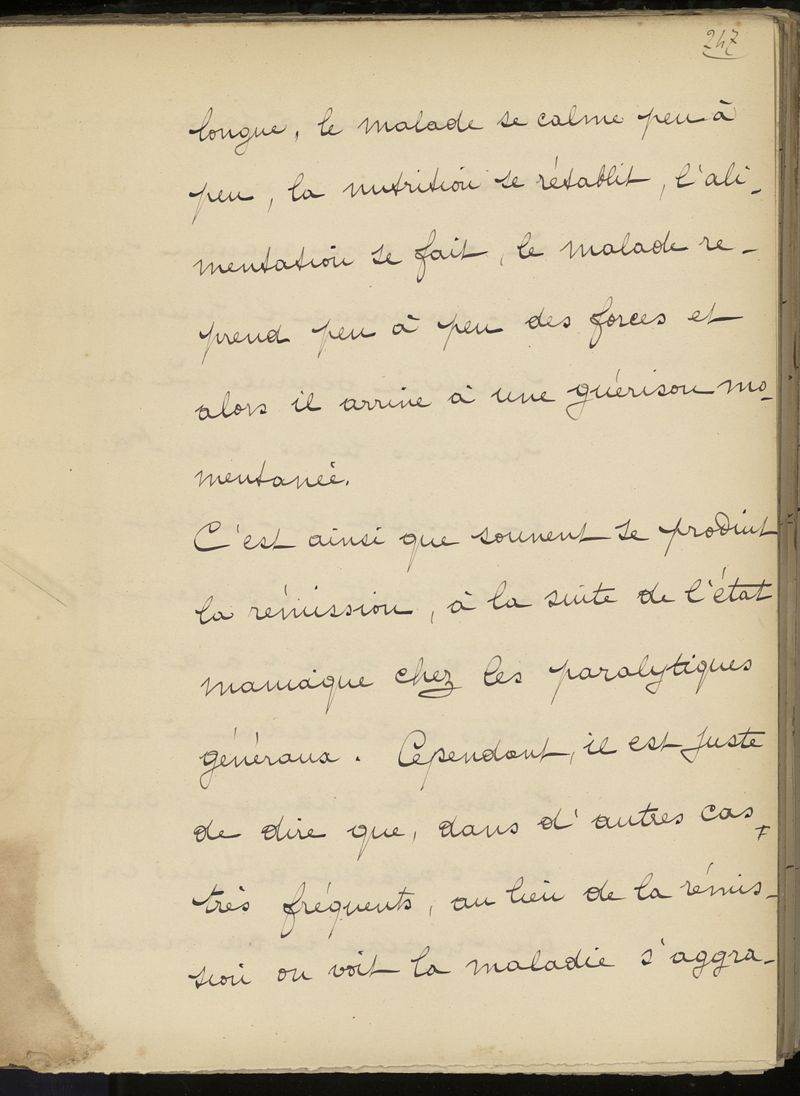 247
longue, le malade se calme peu à
peu, la nutrition se rétablit, l'ali-
mentation se fait, le malade re-
prend peu à peu des forces et
alors il arrive à une guérison mo-
mentanée.
C'est ainsi que souvent se produit
la rémission, à la suite de l'état
maniaque chez les paralytiques
généraux. Cependant, il est juste
de dire que, dans d'autres cas,
très fréquents, au lieu de la rémis-
sion on voit la maladie s'aggra-